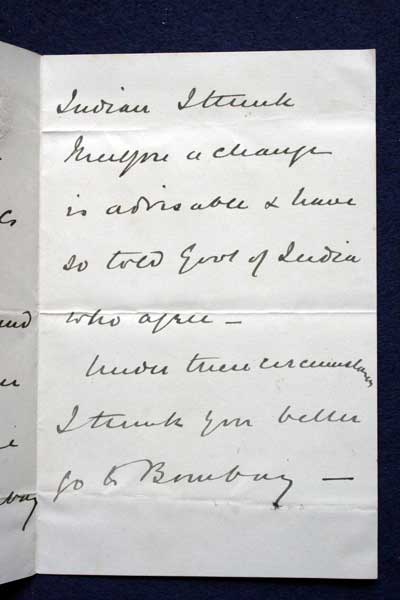 Indian I think
a change
is advisable & have
so told Govt of India
who agree —
Under these circumstances
I think you better
go to Bombay —